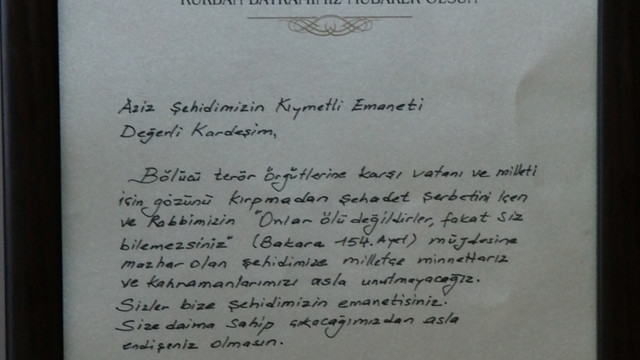 KURBAN BAYRAMINIZ MÜBAREK OLSUN
Aziz Şehidimizin Kıymetli Emaneti
Değerli Kardeşim,
Bölücü terör örgütlerine karşı vatanı ve milleti
için gözünü kırpmadan şehadet şerbetini içen
ve Rabbimizin "Onlar ölü değildirler, fakat siz
bilemezsiniz" (Bakara 154. Ayet) müjdesine
mazhar olan şehidimize milletçe minnettarız
ve kahramanlarımızı asla unutmayacağız.
Sizler bize şehidimizin emanetisiniz.
Size daima sahip çıkacağımızdan asla
endişeniz olmasın.